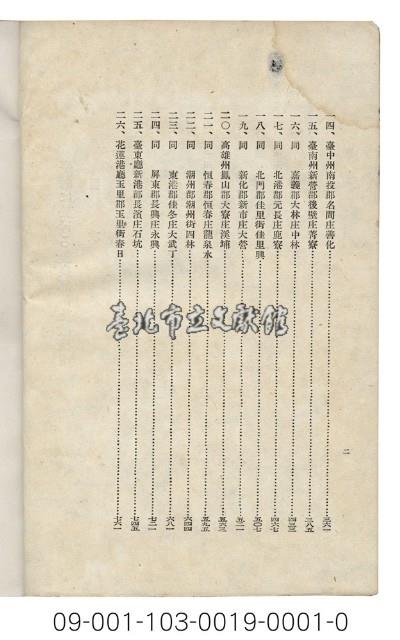 一四、臺中州南投郡名間庄善化……三六一
一五、臺南州新營郡後壁庄菁寮……三八五
一六、同 嘉義郡大林庄中林……四三三
一七、同 北港郡元長庄鹿寮……四六七
一八、同 北門郡佳里街佳里興……五〇七
一九、同 新化郡新市庄大營……五二一
二〇、高雄州鳳山郡大寮庄溪埔……五六三
二一、同 恒春郡恒春庄龍泉水……五九五
二二、同 潮州郡潮州街四林……六四四
二三、同 東港郡佳冬庄大武丁……六八一
二四、同 屏東郡長興庄永興……七二一
二五、臺東廳新港郡長濱庄石坑……七四五
二六、花蓮港廳玉里郡玉里街春日……七六一
二
臺北市立文獻館
09-001-103-0019-0001-0